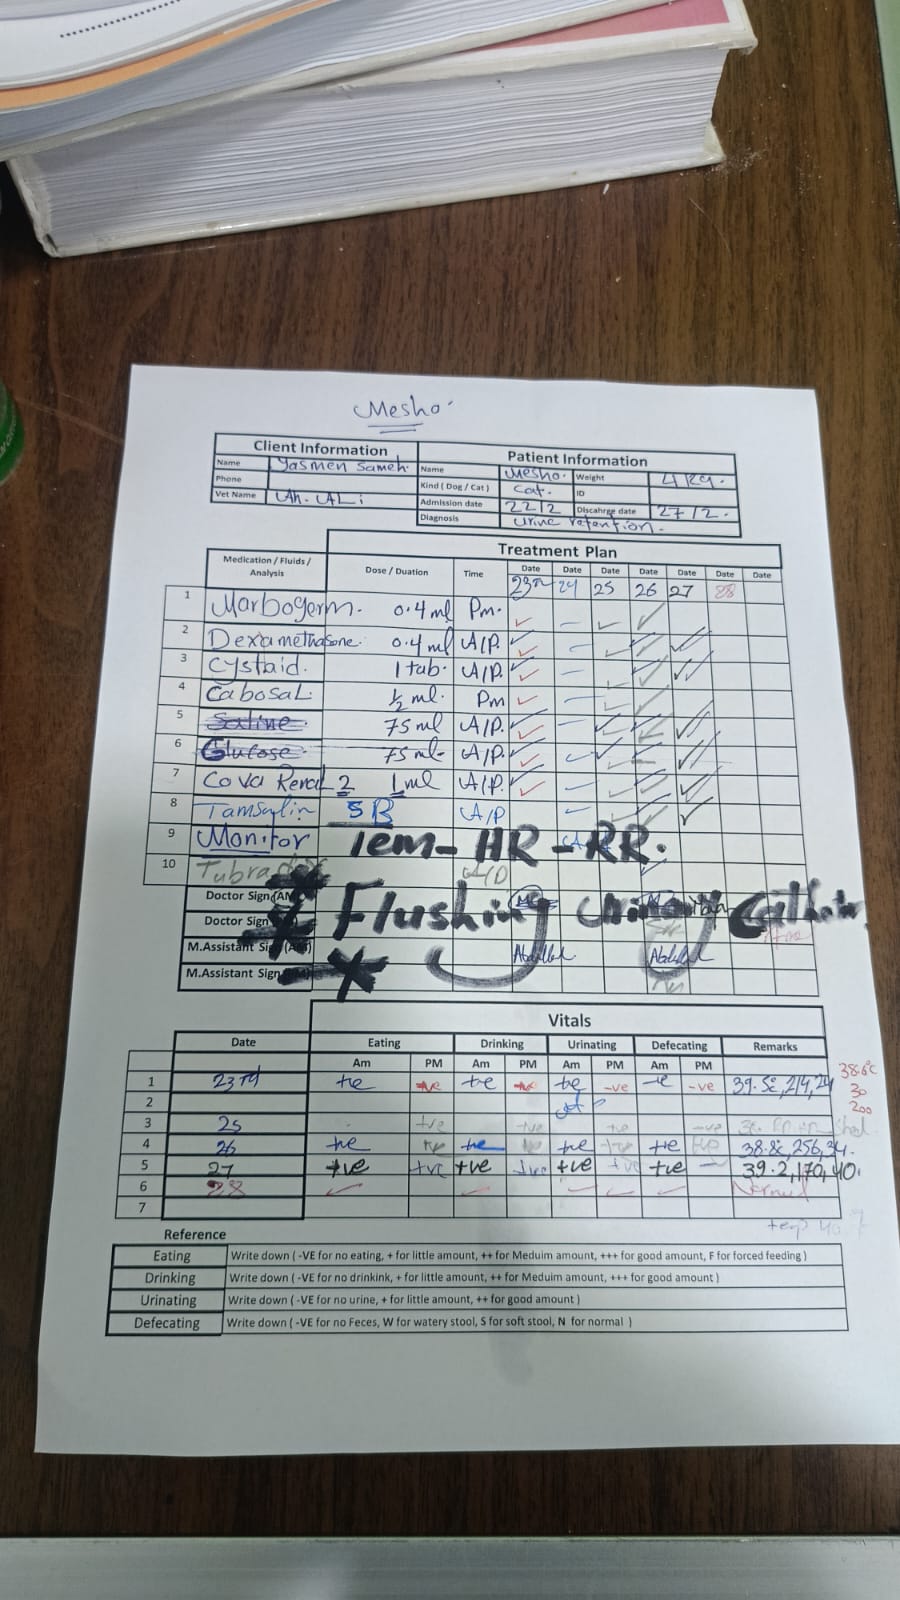 Mesho
Client Information Patient Information
Name Yasmen Sameh Name Mesho Weight 4 Kg.
Phone Kind ( Dog / Cat ) Cat. ID
Vet Name Ah. ALi Admission date 22/2 Discahrge date 27/2.
Diagnosis urine retention.
Treatment Plan
Medication / Fluids / Analysis Dose / Duation Time Date Date Date Date Date Date Date
23 24 25 26 27 28
1 Marbogerm. 0.4 ml Pm.
2 Dexamethasone. 0.4 ml A/P.
3 Cystaid. 1 tab. A/P.
4 Cabosal. ½ ml. Pm
5 Saline. 75 ml A/P.
6 Glucose. 75 ml A/P.
7 Cova Renal 2 1 ml A/P.
8 Tamsulin A/P
9 Monitor Tem - HR - RR.
10
Doctor Sign (AM)
Doctor Sign
Flushing
M.Assistant Sign (AM) Abdullah Abdullah
M.Assistant Sign
Vitals
Date Eating Drinking Urinating Defecating Remarks
Am PM Am PM Am PM Am PM
1 23rd +ve -ve +ve -ve +ve -ve -ve -ve 39.5c, 214, 24
38.6c
30
200
2
3 25 +ve -ve +ve -ve
4 26 +ve +ve +ve +ve +ve +ve 38.8c, 256, 34.
5 27 +ve +ve +ve +ve +ve +ve +ve - 39.2, 170, 40.
6 28 Normal
7
Reference
Eating Write down ( -VE for no eating, + for little amount, ++ for Meduim amount, +++ for good amount, F for forced feeding )
Drinking Write down ( -VE for no drinkink, + for little amount, ++ for Meduim amount, +++ for good amount )
Urinating Write down ( -VE for no urine, + for little amount, ++ for good amount )
Defecating Write down ( -VE for no Feces, W for watery stool, S for soft stool, N for normal )